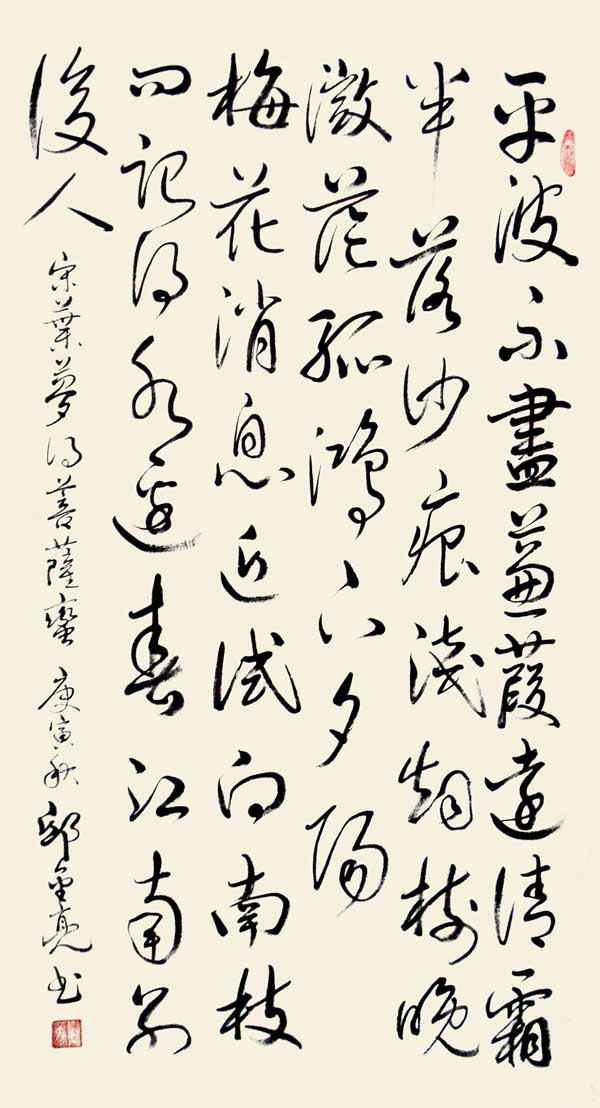 平波不盡蒹葭遠清霜
半落沙痕淺烟樹晚
微茫孤鴻下夕陽
梅花消息近試向南枝
问記得水邊春江南别
後人
宋葉夢得菩薩蠻 庚寅秋 金亮书